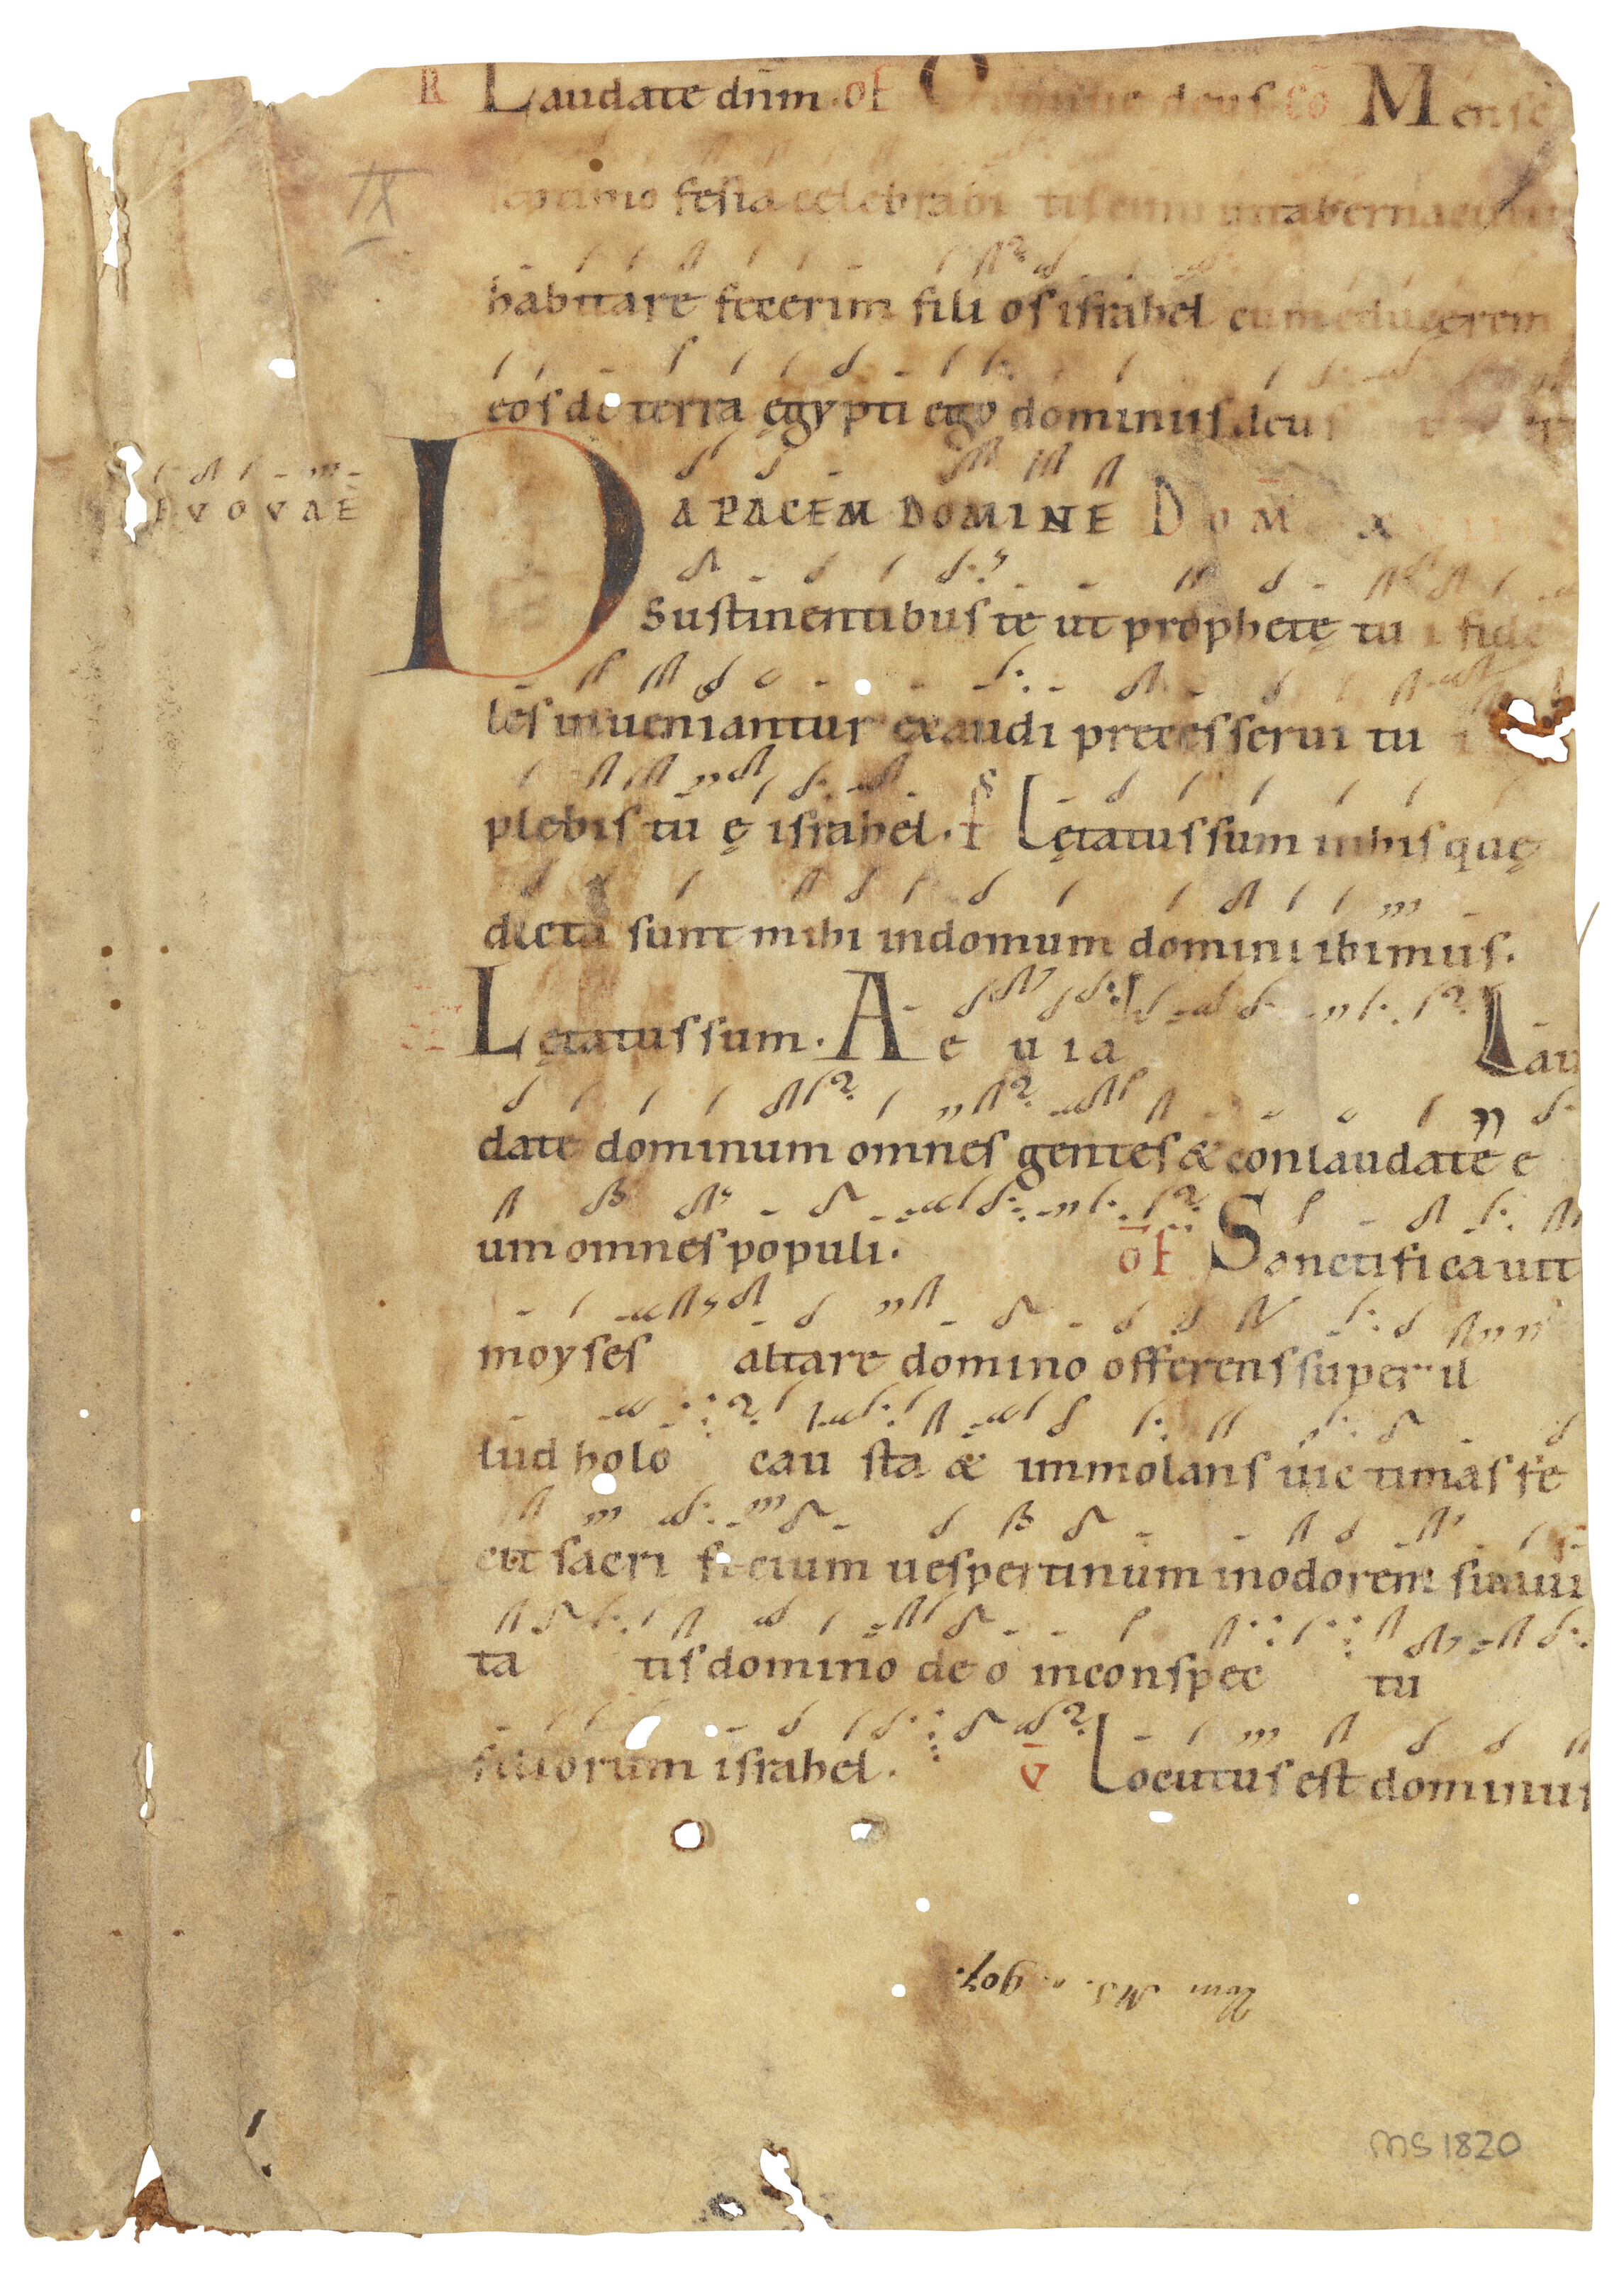 R Laudate dñm. of Domine deus cō Mense
septimo festa celebrabi tis cum in tabernaculis
habitare fecerim fili os israhel cum educerem
eos de terra ęgypti ego dominus deus
EVOVAE
DA PACEM DOMINE DOM̄ X
Sustinentibus te ut prophetę tu i fide
les inueniantur exaudi preces serui tu i
plebis tu ę israhel. ps Lętatus sum in his quę
dicta sunt mihi in domum domini ibimus.
Lętatus sum. A e u i a Lau
date dominum omnes gentes & conlaudate e
um omnes populi. ōf Sanctificauit
moyses altare domino offerens super il
lud holo cau sta & immolans uic timas fe
cit sacri ficium uespertinum in odorem suaui
ta tis domino de o in conspec tu
filiorum israhel. v̄ Locutus est dominus
Zum MS. n. 907.
MS 1820